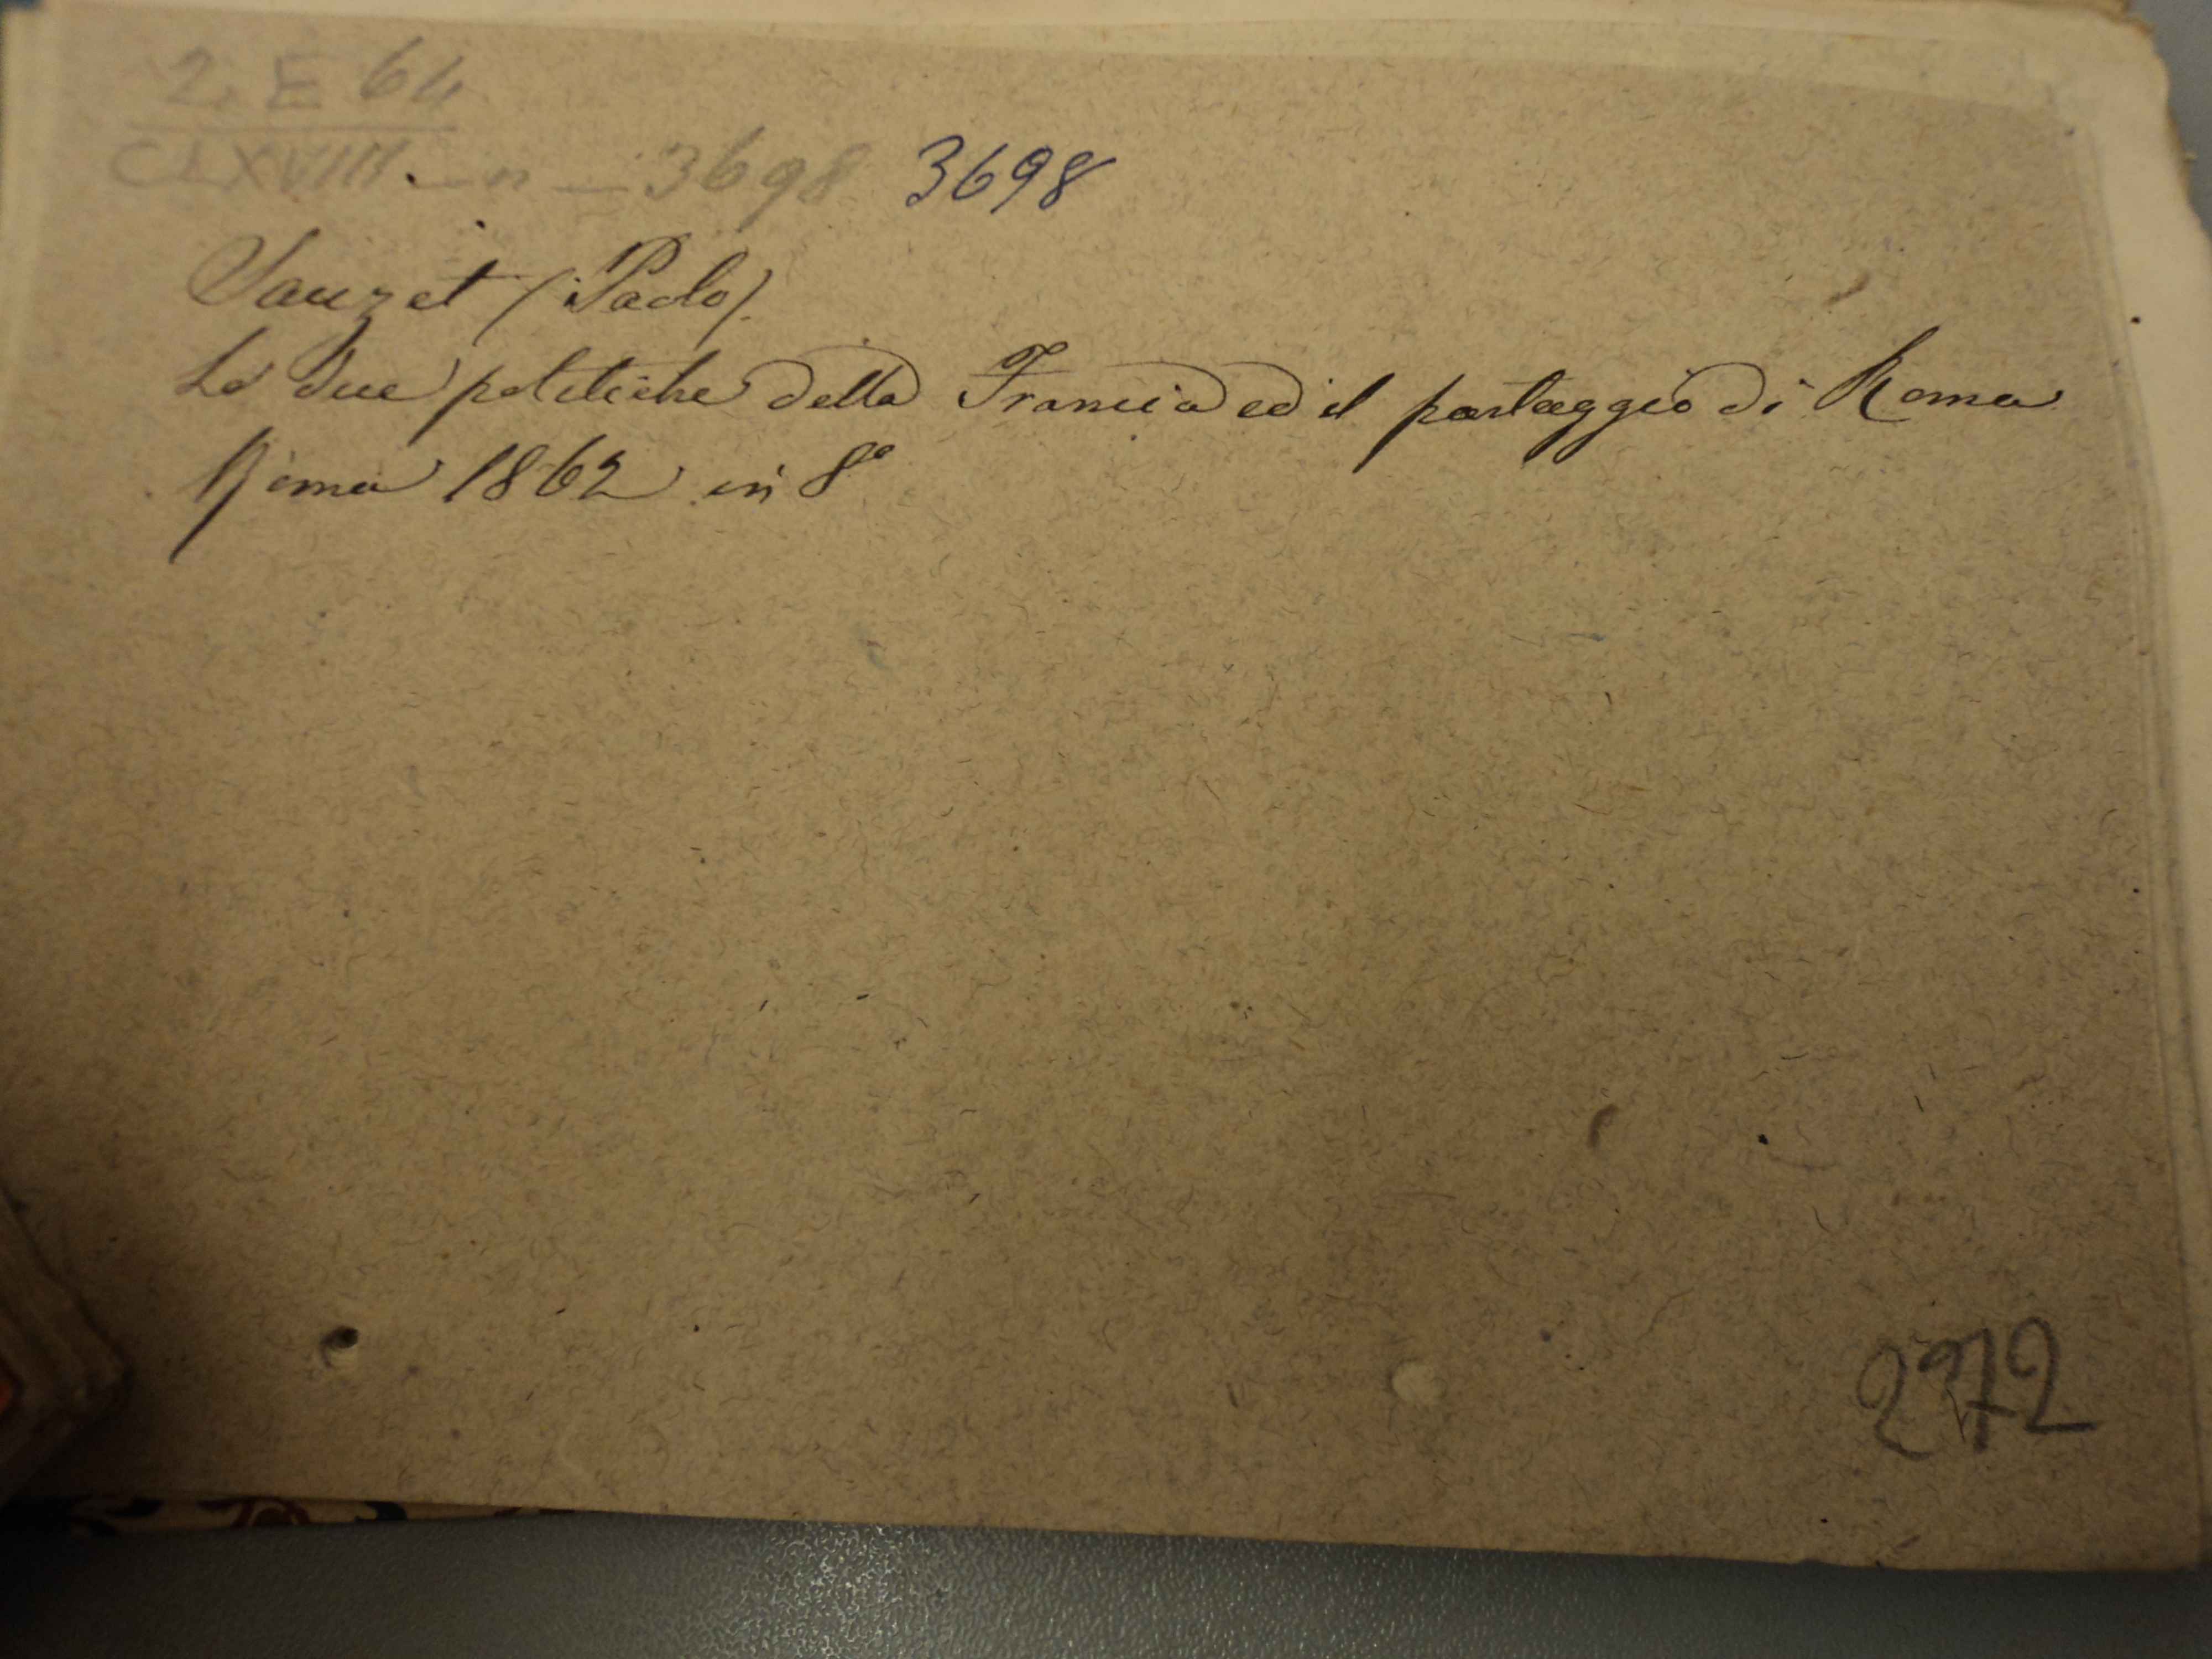 2. E 64
CLXVIIII. — n — 3698 3698
Sauzet (Paolo).
Le due politiche della Francia ed il partaggio di Roma
Roma 1862 in 8°
2972